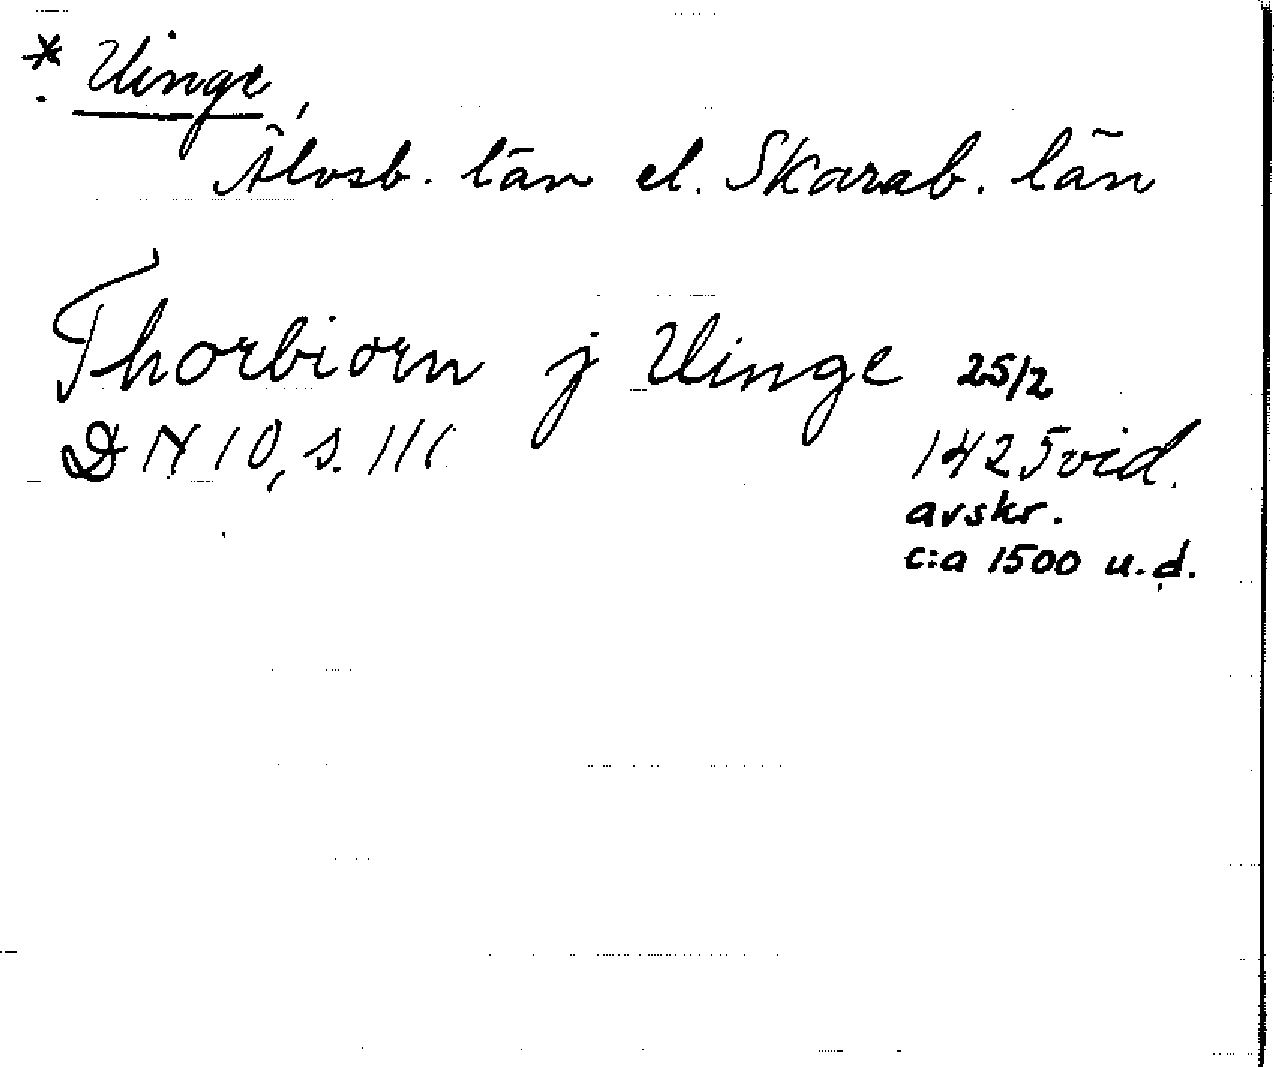 * Uinge,
Älvsb. län el. Skarab. län
Thorbiorn j Uinge 25/2
DN 10, s. 111 1425 vid.
avskr.
c:a 1500 u.d.